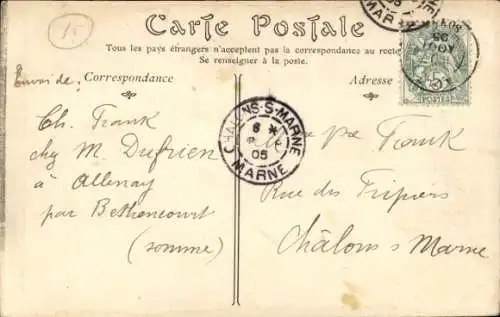 15
Carte Postale
Tous les pays étrangers n'acceptent pas la correspondance au recto
Se renseigner à la poste.
Envoi de:
Correspondance
Adresse
Ch. Frank
chez M Dufrien
à Allenay
par Bethencourt
(somme)
CHALONS-S-MARNE
6 *
05
MARNE
Frank
Rue des Tripiers
Châlons s Marne
AOUT
05
POSTES